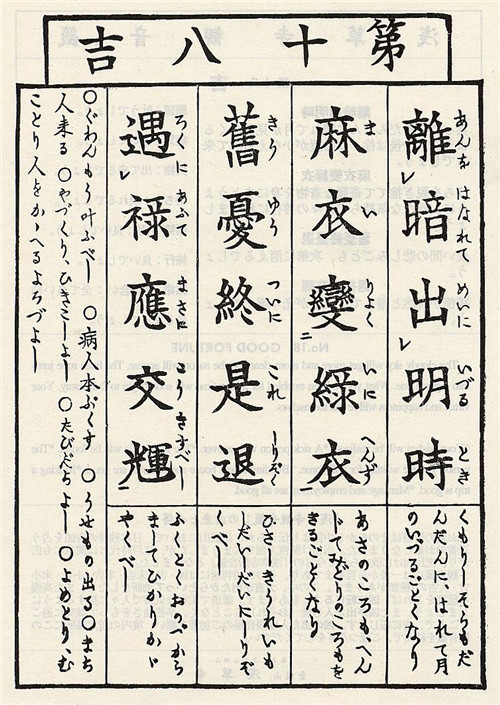 第十八吉
あんを はなれて めいに いづる とき
離レ暗出レ明時
くもりしそらもだ
んだんに、はれて月
のいづるごとくなり
ま い りよく いに へんず
麻衣變二緑衣一
あさのころも、へん
じてみどりのころもを
きるごとくなり
きう ゆう ついに これ しりぞく
舊憂終是退
ひさしきうれいも
しだいしだいにしりぞ
くべし
ろくに あふて まさに こうきすべし
遇レ禄應交輝
ふくとくおのづから
ましてひかりかゞ
やくべし
〇ぐわんもう叶ふべし 〇病人本ぷくす 〇うせもの出る〇まち
人来る〇やづくり、ひきこしよし 〇たびだちよし〇よめとり、む
ことり人をかゝへるよろづよし
No.18 GOOD FORTUNE